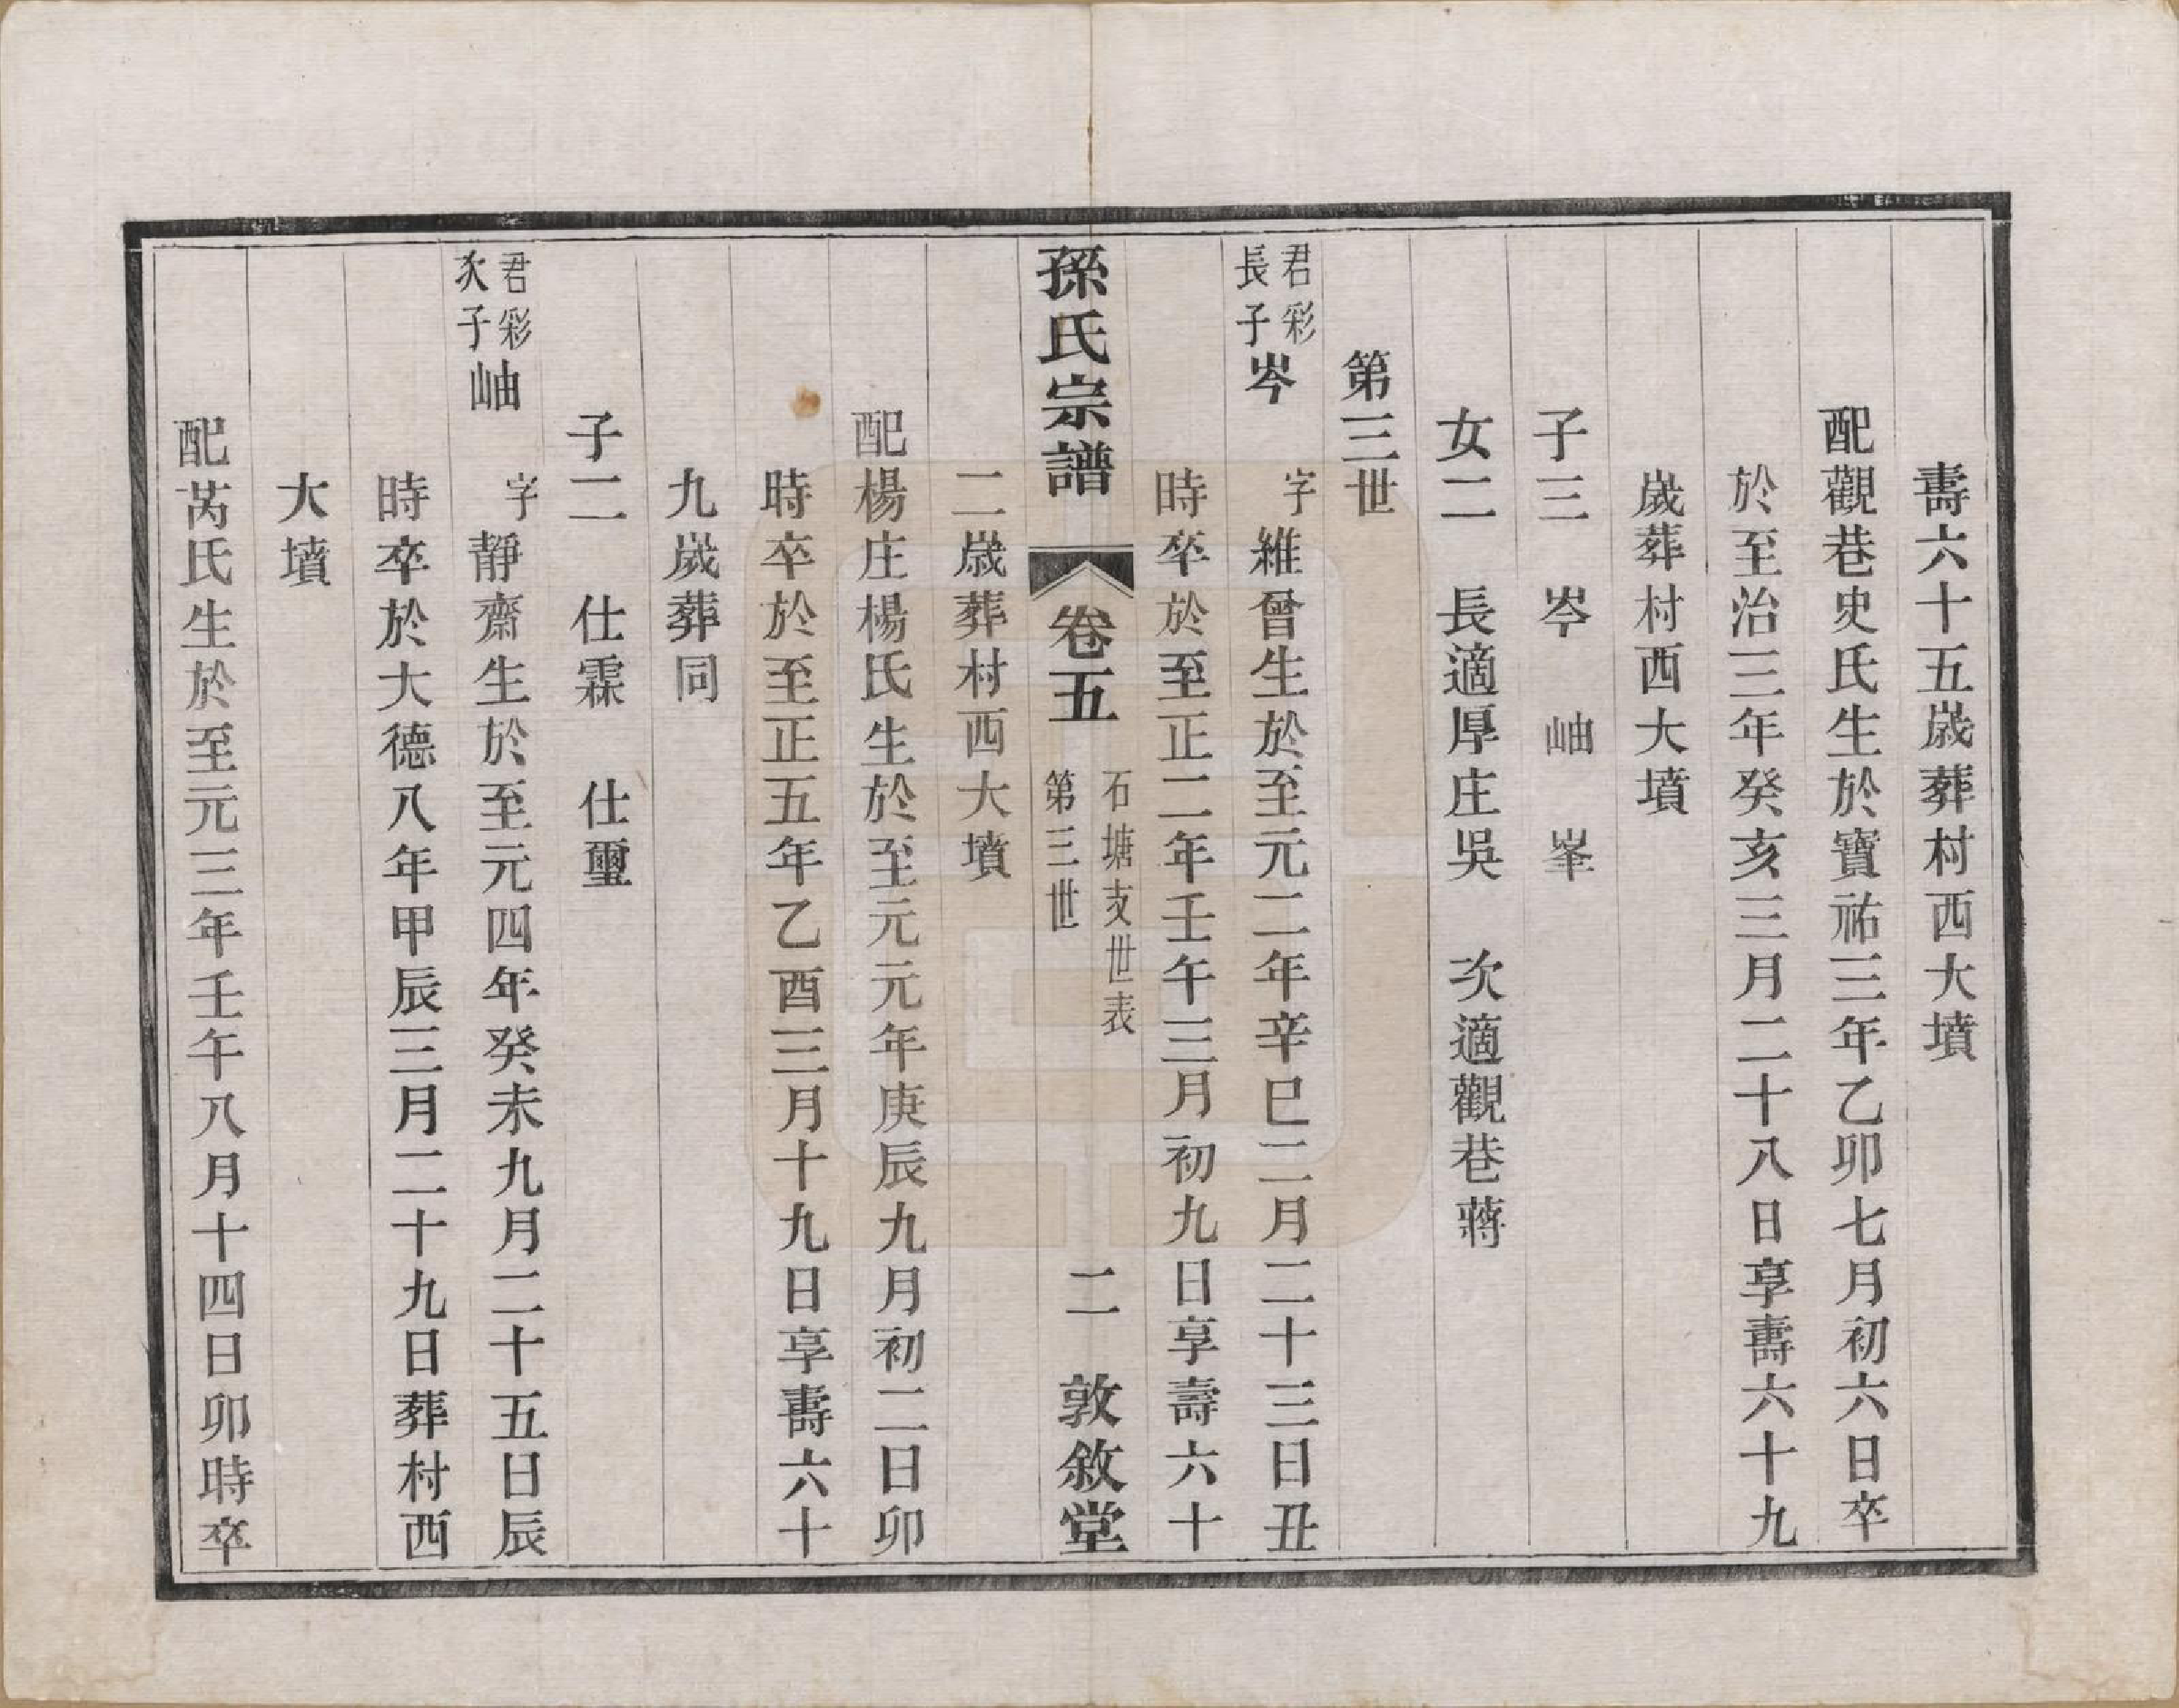 壽六十五歲葬村西大墳
配觀巷史氏生於寶祐三年乙卯七月初六日卒
於至治三年癸亥三月二十八日享壽六十九
歲葬村西大墳
子三　岑　岫　峯
女二　長適厚庄吳　次適觀巷蔣
第三世
君彩長子岑　字維曾生於至元二年辛巳二月二十三日丑
時卒於至正二年壬午三月初九日享壽六十
孫氏宗譜　卷五　石塘支世表　第三世　二　敦敘堂
二歲葬村西大墳
配楊庄楊氏生於至元元年庚辰九月初二日卯
時卒於至正五年乙酉三月十九日享壽六十
九歲葬同
子二　仕霖　仕璽
君彩次子岫　字靜齋生於至元四年癸未九月二十五日辰
時卒於大德八年甲辰三月二十九日葬村西
大墳
配芮氏生於至元三年壬午八月十四日卯時卒